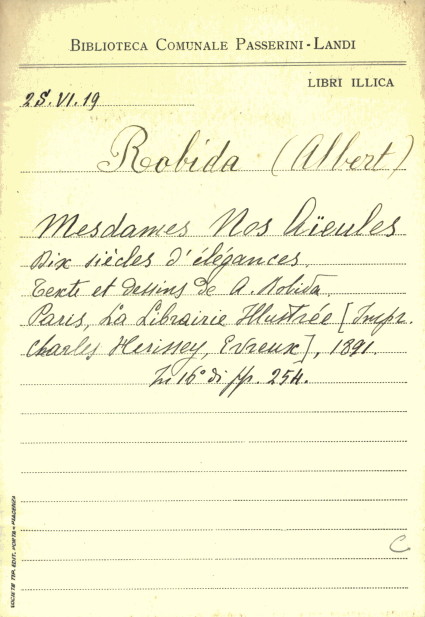 BIBLIOTECA COMUNALE PASSERINI-LANDI
LIBRI ILLICA
2S.VI.19
Robida (Albert)
Mesdames Nos Aïeules
Dix siècles d'élégances
Texte et dessins de A. Robida
Paris, La Librairie Illustrée [Impr.
Charles Herissey, Evreux], 1891.
In 16° di pp. 254.
C
SOCIETÀ TIP. EDIT. PORTA - PIACENZA